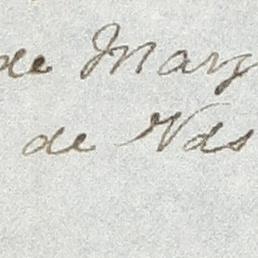 de Març
de Nds